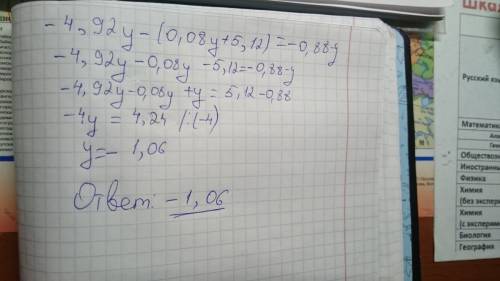 -4,92y-(0,08y+5,12)=-0,88-y
-4,92y-0,08y-5,12=-0,88-y
-4,92y-0,08y+y=5,12-0,88
-4y=4,24 /:(-4)
y=-1,06
Ответ: -1,06
Шкал
Русский язы
Математик
Ал
Гео
Обществоз
Иностранны
Физика
Химия
(без экспери
Химия
(с эксперим
Биология
География